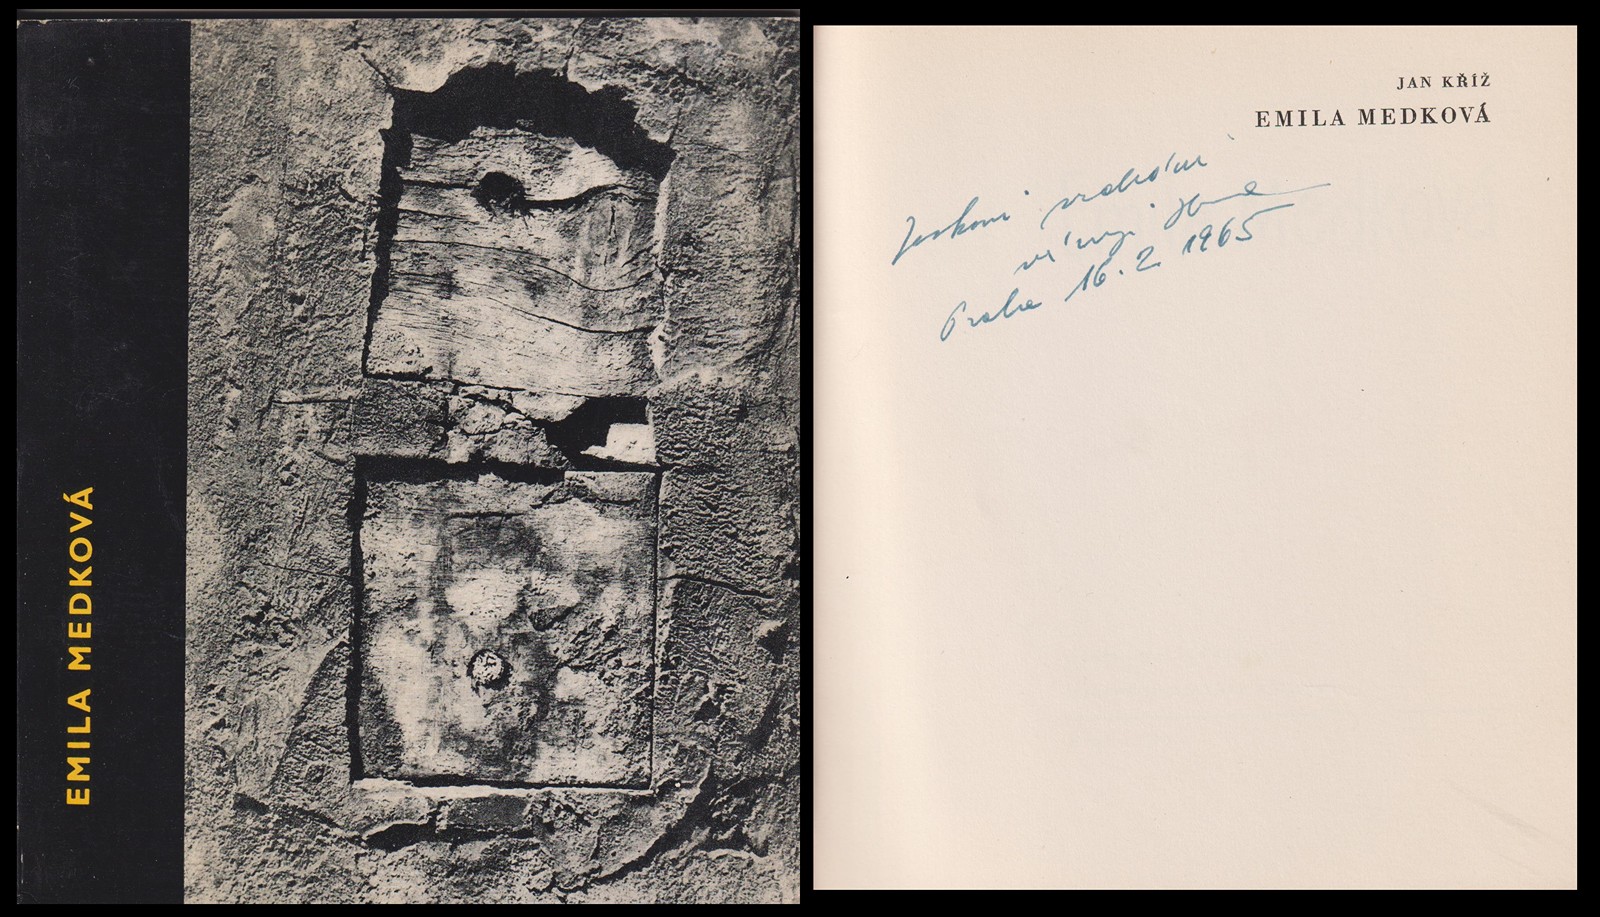 EMILA MEDKOVÁ
JAN KŘÍŽ
EMILA MEDKOVÁ
srdečně
věnuje
Praha 16. 2. 1965